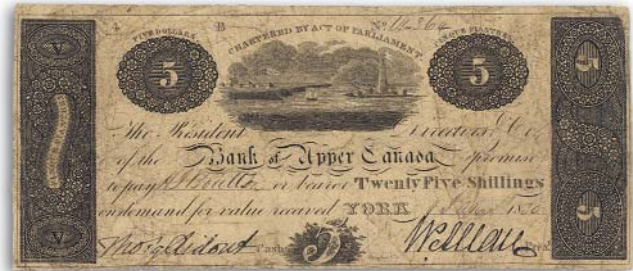 A B No
FIVE DOLLARS CHARTERED BY ACT OF PARLIAMENT CINQUE PIASTRES
V 5 5 5
The President Directors & Co.
of the Bank of Upper Canada promise
to pay or bearer Twenty Five Shillings
on demand for value received YORK
V Thos. G. Ridout Cashr. 5 Wm Allan Prest. 5